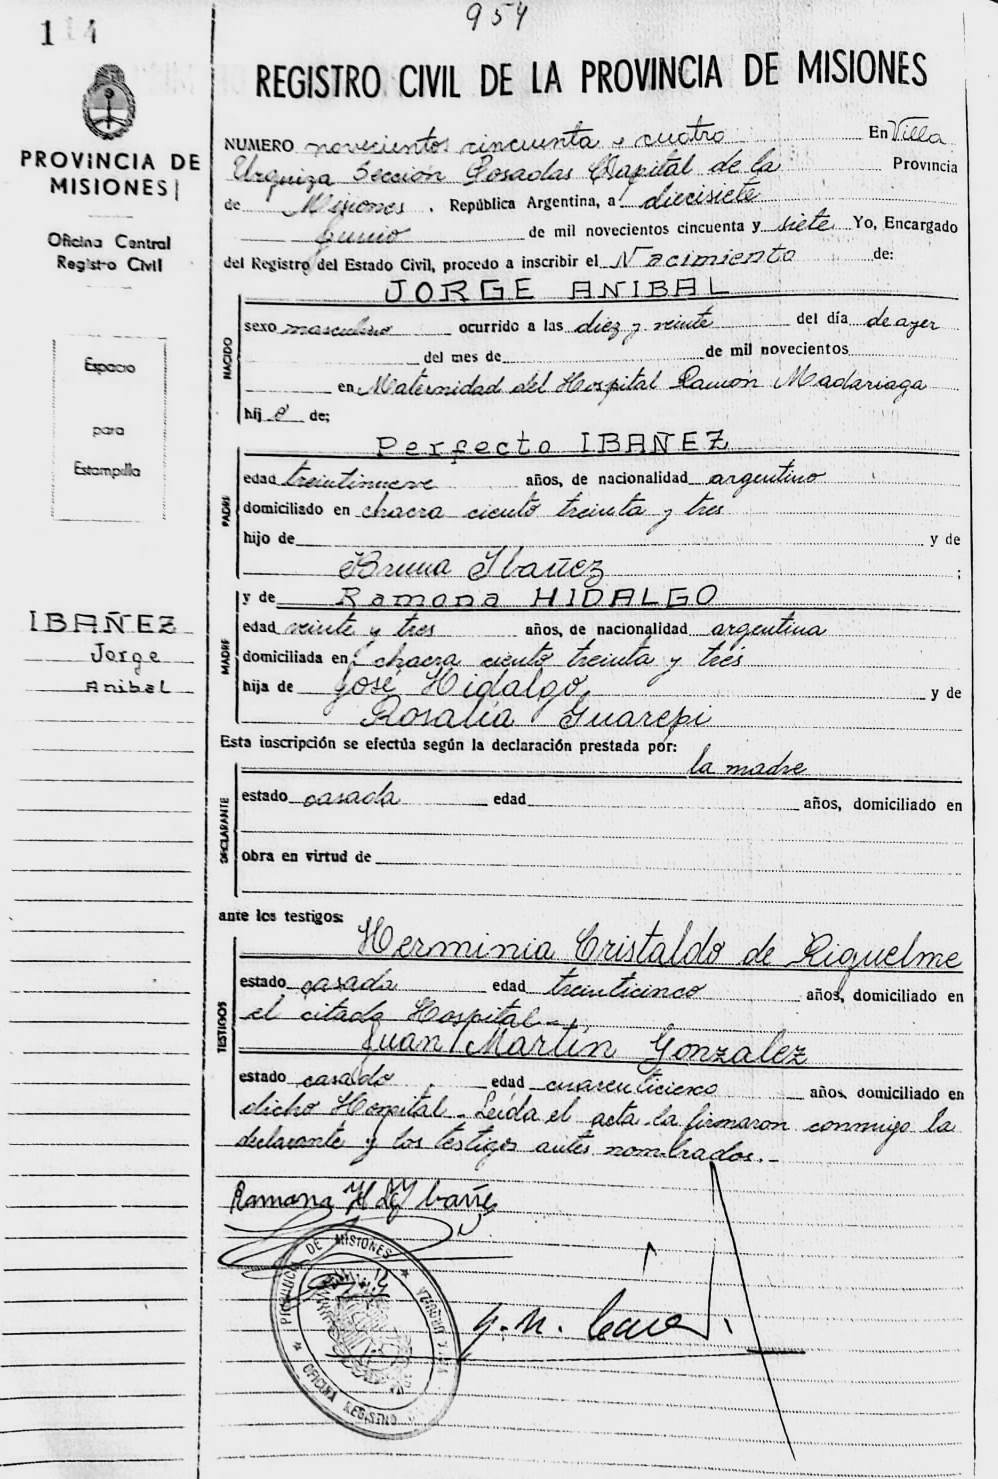 954
114
REGISTRO CIVIL DE LA PROVINCIA DE MISIONES
PROVINCIA DE
MISIONES
Oficina Central
Registro Civil
Espacio
para
Estampilla
IBAÑEZ
Jorge
Anibal
NUMERO novecientos cincuenta y cuatro En Villa
Urquiza Sección Posadas Capital de la Provincia
de Misiones, República Argentina, a diecisiete
Junio de mil novecientos cincuenta y siete Yo, Encargado
del Registro del Estado Civil, procedo a inscribir el Nacimiento de:
JORGE ANIBAL
NACIDO
sexo masculino ocurrido a las diez y veinte del día de ayer
del mes de de mil novecientos
en Maternidad del Hospital Ramón Madariaga
hij o de;
Perfecto IBAÑEZ
PADRE
edad treintinueve años, de nacionalidad argentino
domiciliado en chacra ciento treinta y tres
hijo de y de
Bruna Ibañez ;
y de Ramona HIDALGO
MADRE
edad veinte y tres años, de nacionalidad argentina
domiciliada en chacra ciento treinta y tres
hija de José Hidalgo y de
Rosalía Guarepi
Esta inscripción se efectúa según la declaración prestada por:
la madre
DECLARANTE
estado casada edad años, domiciliado en
obra en virtud de
ante los testigos:
Herminia Cristaldo de Riquelme
TESTIGOS
estado casada edad treinticinco años, domiciliado en
el citado Hospital-
Juan Martín Gonzalez
estado casado edad cuarenticinco años, domiciliado en
dicho Hospital - Leída el acta la firmaron conmigo la
declarante y los testigos antes nombrados.-
Ramona H de Ibañez
PROVINCIA DE MISIONES
OFICINA REGISTRO